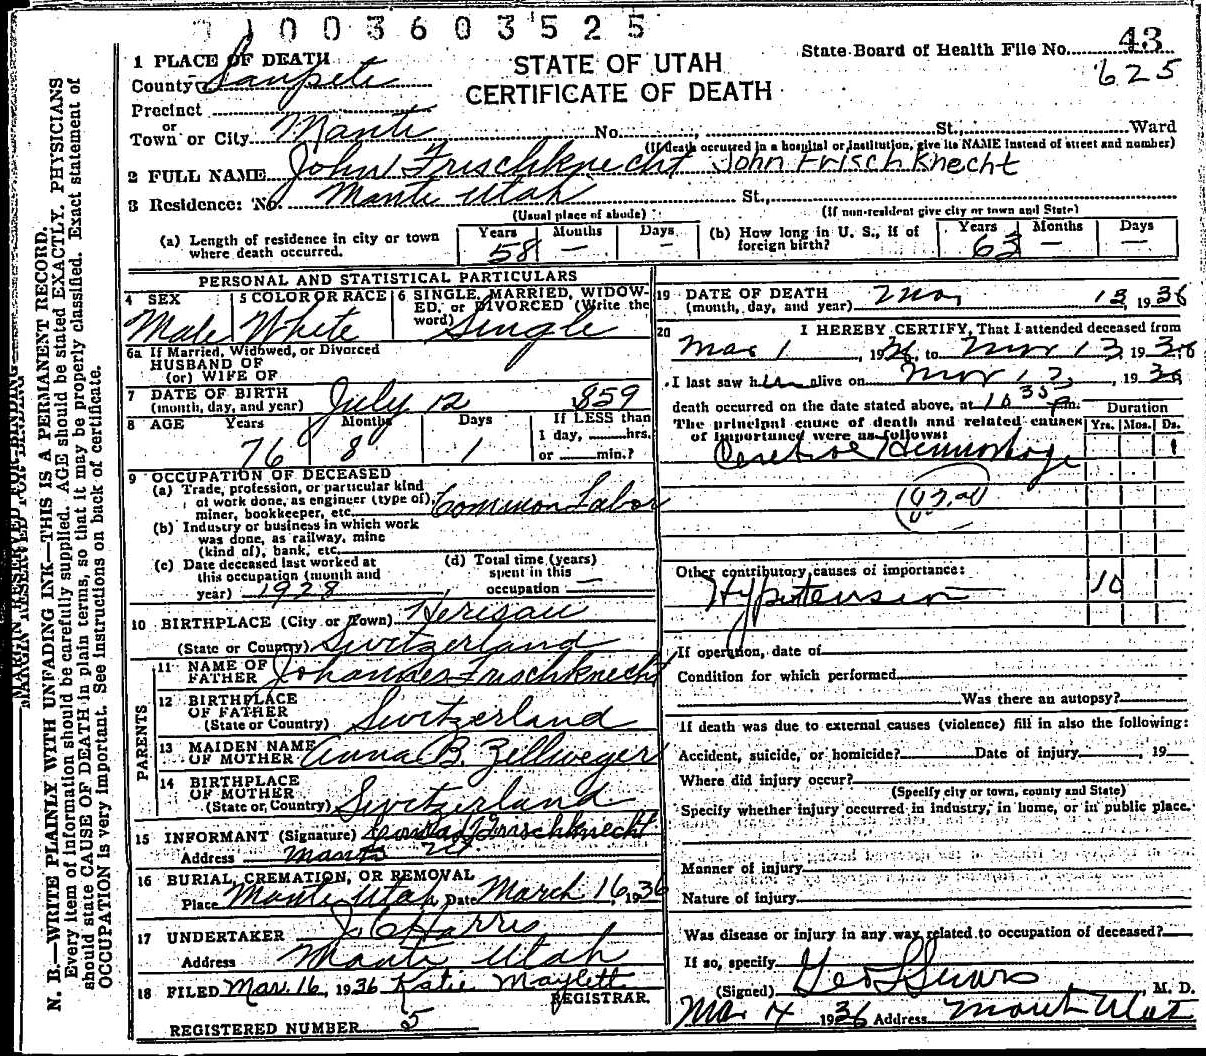 1003603525
STATE OF UTAH
CERTIFICATE OF DEATH
State Board of Health File No. 43
625
1 PLACE OF DEATH
County Sanpete
Precinct
or
Town or City Manti No. , St., Ward
(If death occurred in a hospital or institution, give its NAME instead of street and number)
2 FULL NAME John Frischknecht John Frischknecht
3 Residence: No. Manti Utah St.,
(Usual place of abode) (If non-resident give city or town and State)
(a) Length of residence in city or town where death occurred. Years 58 Months — Days —
(b) How long in U. S., if of foreign birth? Years 63 Months — Days —
PERSONAL AND STATISTICAL PARTICULARS
4 SEX Male
5 COLOR OR RACE White
6 SINGLE, MARRIED, WIDOWED, or DIVORCED (Write the word) Single
6a If Married, Widowed, or Divorced
HUSBAND OF
(or) WIFE OF
7 DATE OF BIRTH
(month, day, and year) July 12 859
8 AGE Years 76 Months 8 Days 1 If LESS than
1 day, hrs.
or min.?
9 OCCUPATION OF DECEASED
(a) Trade, profession, or particular kind
of work done, as engineer (type of),
miner, bookkeeper, etc. Common Labor
(b) Industry or business in which work
was done, as railway, mine
(kind of), bank, etc.
(c) Date deceased last worked at
this occupation (month and
year) 1928
(d) Total time (years)
spent in this
occupation —
10 BIRTHPLACE (City or Town) Herisau
(State or Country) Switzerland
PARENTS
11 NAME OF
FATHER Johannes Frischknecht
12 BIRTHPLACE
OF FATHER
(State or Country) Switzerland
13 MAIDEN NAME
OF MOTHER Anna B. Zellweger
14 BIRTHPLACE
OF MOTHER
(State or Country) Switzerland
15 INFORMANT (Signature) Frischknecht
Address Manti Ut
16 BURIAL, CREMATION, OR REMOVAL
Place Manti Utah Date March 16, 1936
17 UNDERTAKER J. C. Harris
Address Manti Utah
18 FILED Mar. 16, 1936 Katie Maylett
REGISTRAR.
REGISTERED NUMBER 5
19 DATE OF DEATH
(month, day, and year) Mar 13, 1936
20 I HEREBY CERTIFY, That I attended deceased from
Mar 1, 1936, to Mar 13 1936
I last saw him alive on Mar 13, 1936
death occurred on the date stated above, at 10 35 p m.
The principal cause of death and related causes
of importance were as follows:
Duration
Yrs. Mos. Ds.
Cerebral Hemorrhage 1
Other contributory causes of importance:
Hypertension 10
If operation, date of
Condition for which performed
Was there an autopsy?
If death was due to external causes (violence) fill in also the following:
Accident, suicide, or homicide? Date of injury , 19
Where did injury occur?
(Specify city or town, county and State)
Specify whether injury occurred in industry, in home, or in public place.
Manner of injury
Nature of injury
Was disease or injury in any way related to occupation of deceased?
If so, specify
(Signed) Geo L Sears, M. D.
Mar 14 1936 Address Manti Utah
MARGIN RESERVED FOR BINDING
N. B.—WRITE PLAINLY WITH UNFADING INK—THIS IS A PERMANENT RECORD.
Every item of information should be carefully supplied. AGE should be stated EXACTLY. PHYSICIANS
should state CAUSE OF DEATH in plain terms, so that it may be properly classified. Exact statement of
OCCUPATION is very important. See instructions on back of certificate.